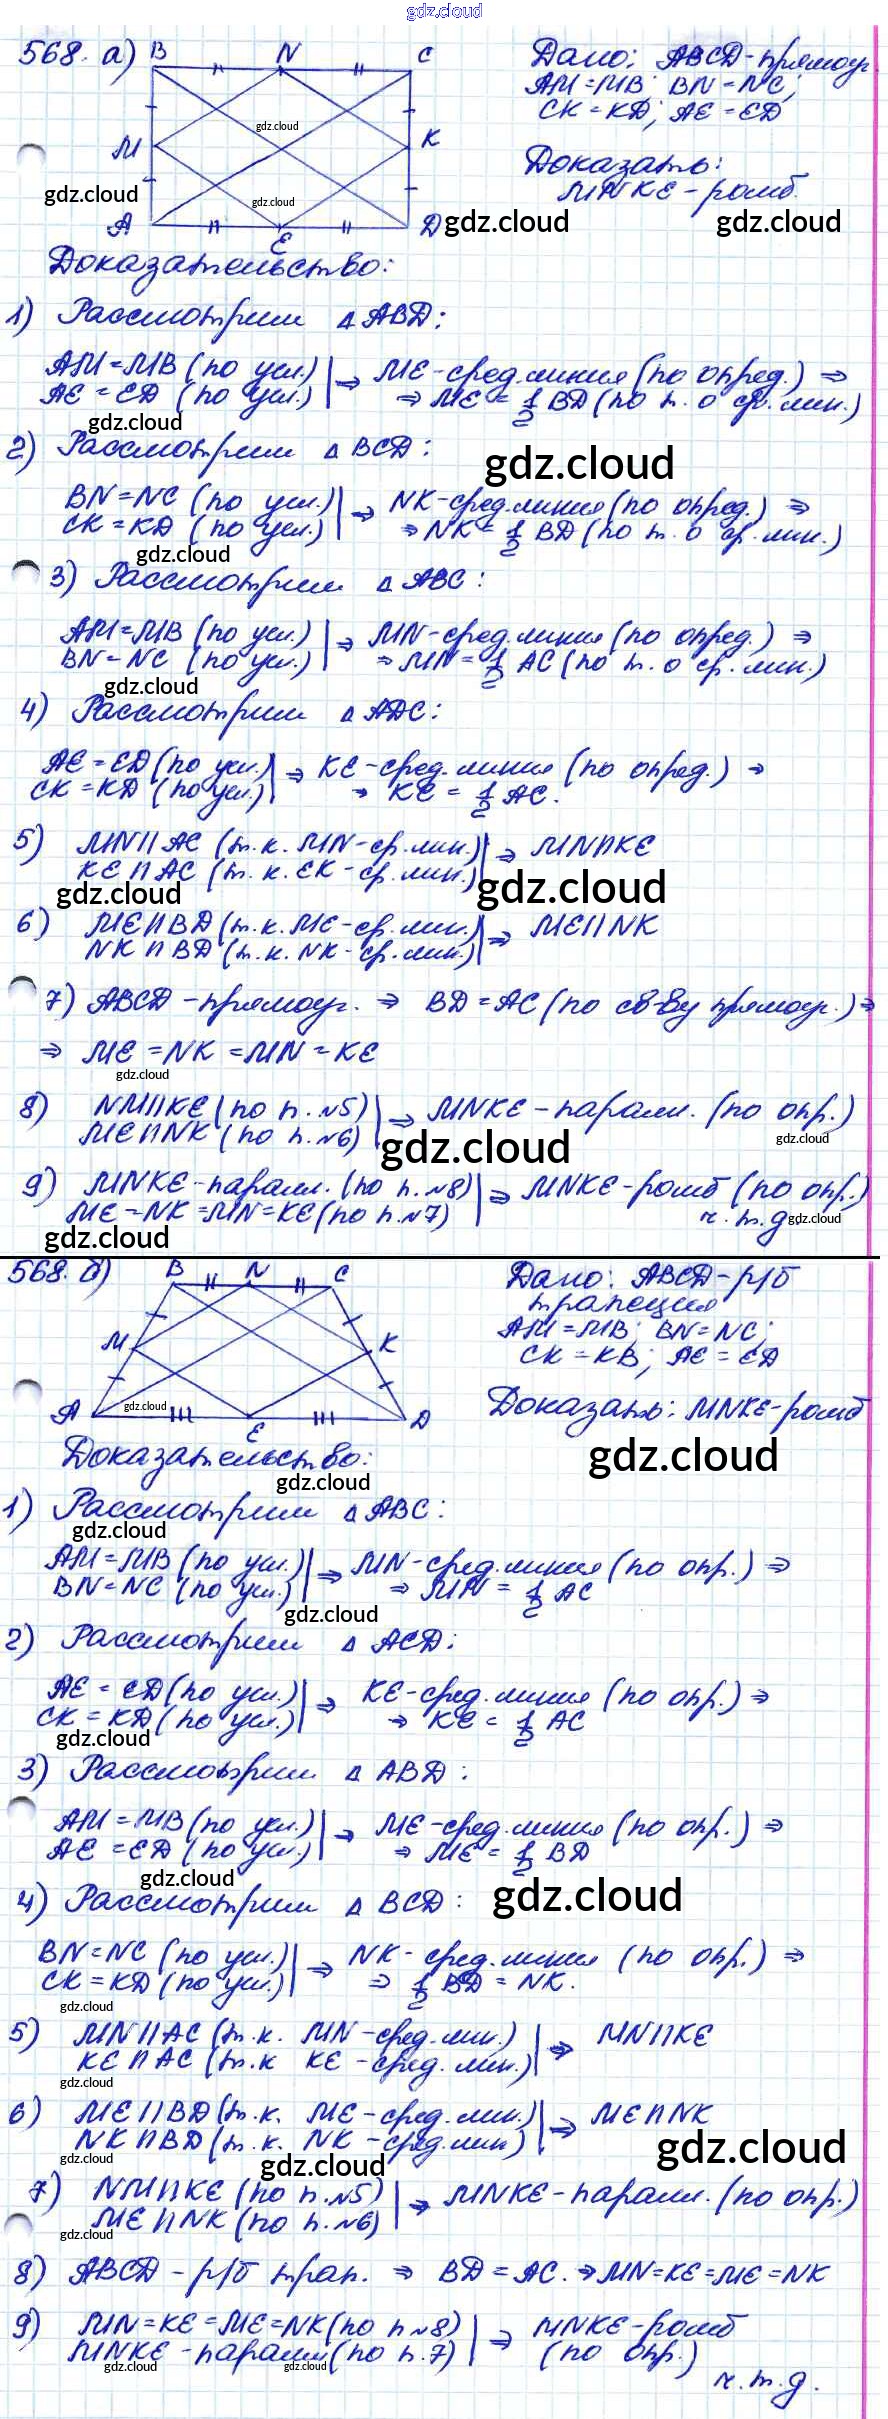 gdz.cloud
568. а) B N C
M K
A E D
gdz.cloud
gdz.cloud
gdz.cloud
gdz.cloud
gdz.cloud
Дано: ABCD-прямоуг.
AM=MB; BN=NC;
CK=KD; AE=ED
Доказать:
MNKE-ромб.
Доказательство:
1) Рассмотрим △ABD:
AM=MB (по усл.) | ⇒ ME-сред.линия (по опред.) ⇒
AE=ED (по усл.) | ⇒ ME = 1/2 BD (по т. о ср. лин.)
gdz.cloud
2) Рассмотрим △BCD:
gdz.cloud
BN=NC (по усл.) | ⇒ NK-сред.линия (по опред.) ⇒
CK=KD (по усл.) | ⇒ NK = 1/2 BD (по т. о ср. лин.)
gdz.cloud
3) Рассмотрим △ABC:
AM=MB (по усл.) | ⇒ MN-сред.линия (по опред.) ⇒
BN=NC (по усл.) | ⇒ MN = 1/2 AC (по т. о ср. лин.)
gdz.cloud
4) Рассмотрим △ADC:
AE=ED (по усл.) | ⇒ KE-сред.линия (по опред.) ⇒
CK=KD (по усл.) | ⇒ KE = 1/2 AC.
5) MN || AC (т.к. MN-ср.лин.) | ⇒ MN || KE
KE || AC (т.к. EK-ср.лин.) |
gdz.cloud gdz.cloud
6) ME || BD (т.к. ME-ср.лин.) | ⇒ ME || NK
NK || BD (т.к. NK-ср.лин.) |
7) ABCD-прямоуг. ⇒ BD=AC (по св-ву прямоуг.) ⇒
⇒ ME=NK=MN=KE
gdz.cloud
8) NM || KE (по п.№5) | ⇒ MNKE-паралл. (по опр.)
ME || NK (по п.№6) |
gdz.cloud gdz.cloud
9) MNKE-паралл. (по п.№8) | ⇒ MNKE-ромб (по опр.)
ME=NK=MN=KE (по п.№7) | ч.т.д.
gdz.cloud gdz.cloud
568. б) B N C
M K
A E D
gdz.cloud
Дано: ABCD-р/б
трапеция
AM=MB; BN=NC;
CK=KB; AE=ED
Доказать: MNKE-ромб
gdz.cloud
Доказательство:
gdz.cloud
1) Рассмотрим △ABC:
gdz.cloud
AM=MB (по усл.) | ⇒ MN-сред.линия (по опр.) ⇒
BN=NC (по усл.) | ⇒ MN = 1/2 AC
gdz.cloud
2) Рассмотрим △ACD:
AE=ED (по усл.) | ⇒ KE-сред.линия (по опр.) ⇒
CK=KD (по усл.) | ⇒ KE = 1/2 AC
gdz.cloud
3) Рассмотрим △ABD:
AM=MB (по усл.) | ⇒ ME-сред.линия (по опр.) ⇒
AE=ED (по усл.) | ⇒ ME = 1/2 BD
gdz.cloud
4) Рассмотрим △BCD:
gdz.cloud
BN=NC (по усл.) | ⇒ NK-сред.линия (по опр.) ⇒
CK=KD (по усл.) | ⇒ 1/2 BD = NK.
gdz.cloud
5) MN || AC (т.к. MN-сред.лин.) | ⇒ MN || KE
KE || AC (т.к KE-сред.лин.) |
gdz.cloud
6) ME || BD (т.к. ME-сред.лин.) | ⇒ ME || NK
NK || BD (т.к. NK-сред.лин) |
gdz.cloud gdz.cloud gdz.cloud
7) NM || KE (по п.№5) | ⇒ MNKE-паралл. (по опр.)
ME || NK (по п.№6) |
gdz.cloud
8) ABCD-р/б трап. ⇒ BD=AC. ⇒ MN=KE=ME=NK
9) MN=KE=ME=NK (по п№8) | ⇒ MNKE-ромб
MNKE-паралл (по п.7) | (по опр.)
gdz.cloud gdz.cloud
ч.т.д.